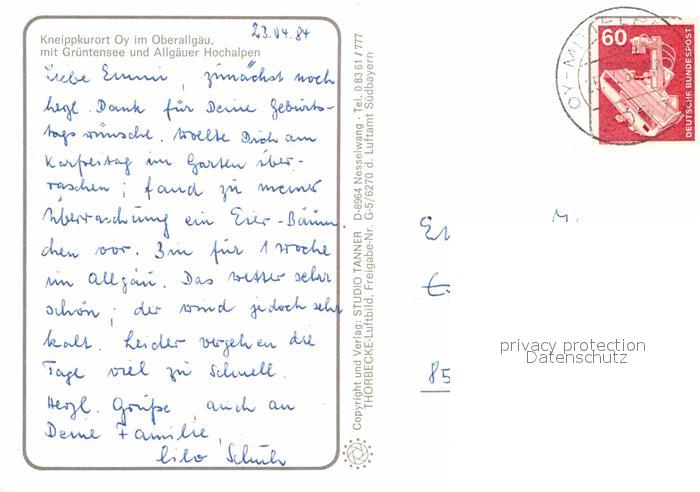 23.04.84
Kneippkurort Oy im Oberallgäu,
mit Grüntensee und Allgäuer Hochalpen
Liebe Emmi, zunächst noch
herzl. Dank für Deine Geburts-
tagswünsche. Wollte Dich am
Karfreitag im Garten über-
raschen; fand zu meiner
Überraschung ein Eier-Bäum
chen vor. Bin für 1 Woche
im Allgäu. Das Wetter sehr
schön; der Wind jedoch sehr
kalt. Leider vergehen die
Tage viel zu schnell.
Herzl. Grüße, auch an
Deine Familie,
Lilo Schuh
Copyright und Verlag: STUDIO TANNER D-8964 Nesselwang - Tel. 0 83 61 / 777
THORBECKE-Luftbild, Freigabe-Nr. G-5/6270 d. Luftamt Südbayern
OY-MITTELB
60
DEUTSCHE BUNDESPOST
M.
85
privacy protection
Datenschutz